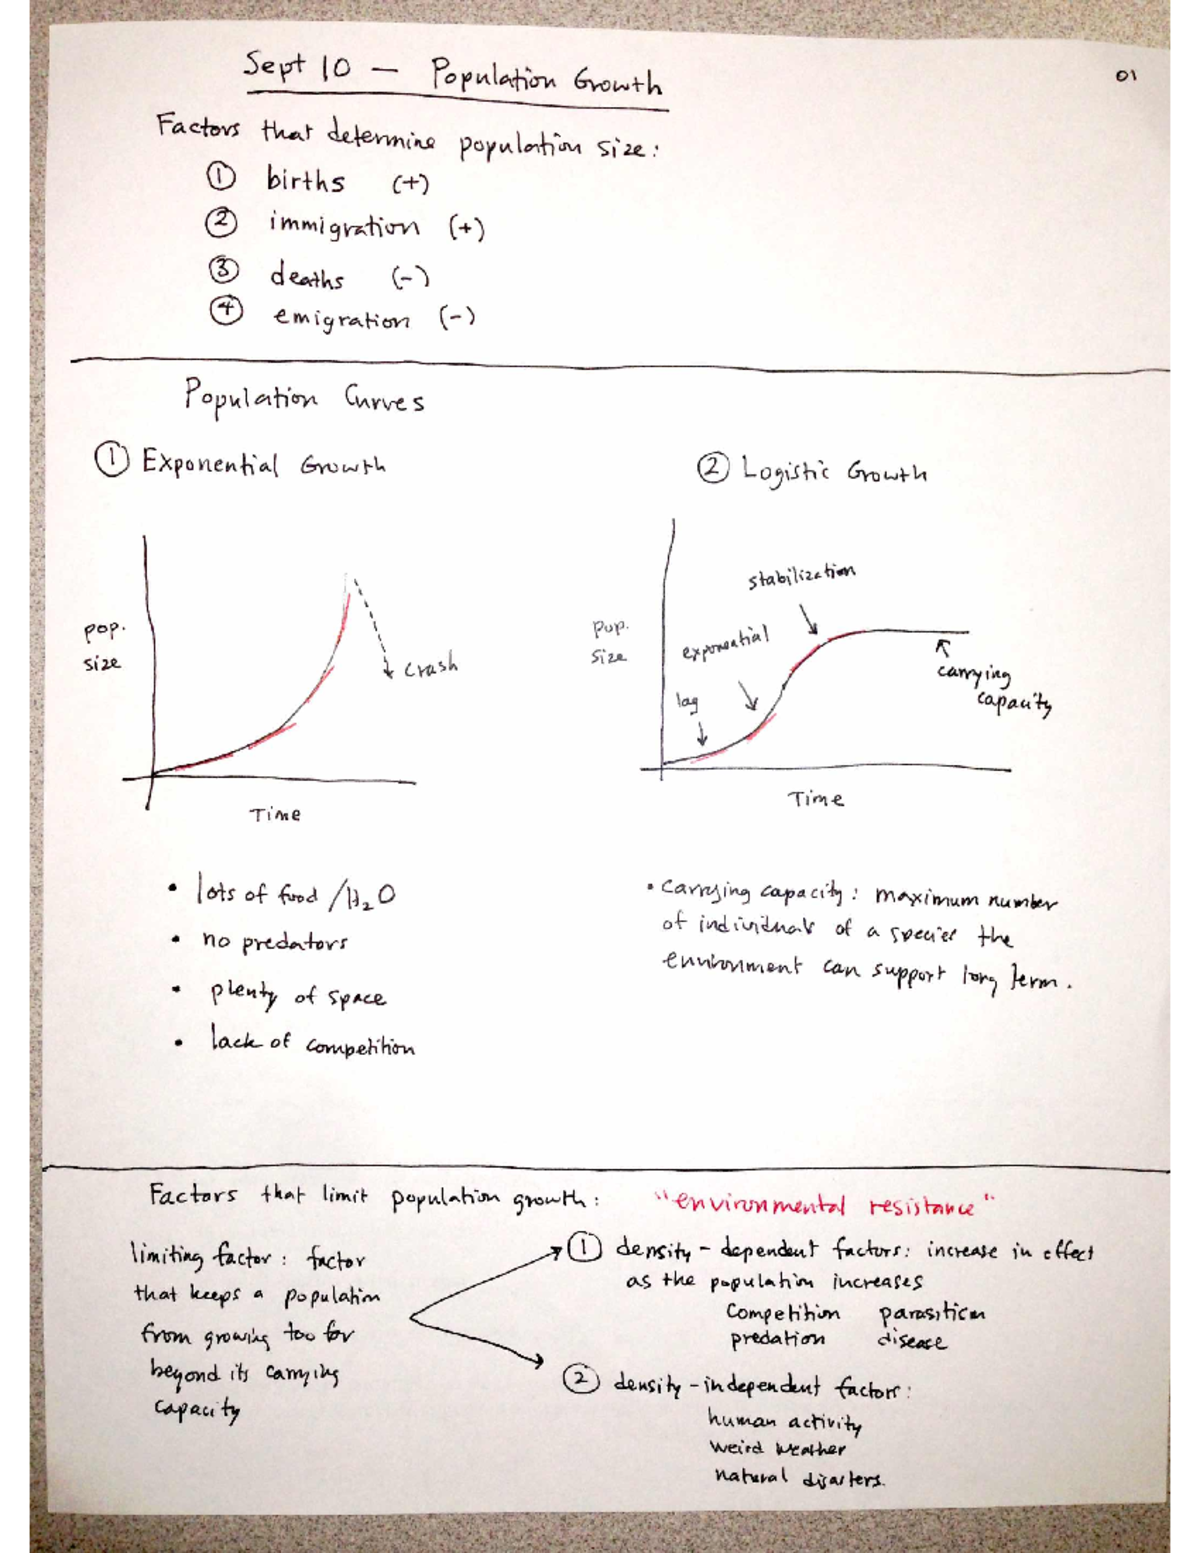 Sept 10 — Population Growth
01
Factors that determine population size:
① births (+)
② immigration (+)
③ deaths (-)
④ emigration (-)
Population Curves
① Exponential Growth
pop.
size
crash
Time
• lots of food / H₂O
• no predators
• plenty of space
• lack of competition
② Logistic Growth
stabilization
pop.
size
exponential
lag
carrying
capacity
Time
• carrying capacity: maximum number
of individuals of a species the
environment can support long term.
Factors that limit population growth: "environmental resistance"
limiting factor: factor
that keeps a population
from growing too far
beyond its carrying
capacity
① density-dependent factors: increase in effect
as the population increases
competition parasitism
predation disease
② density-independent factors:
human activity
weird weather
natural disasters.